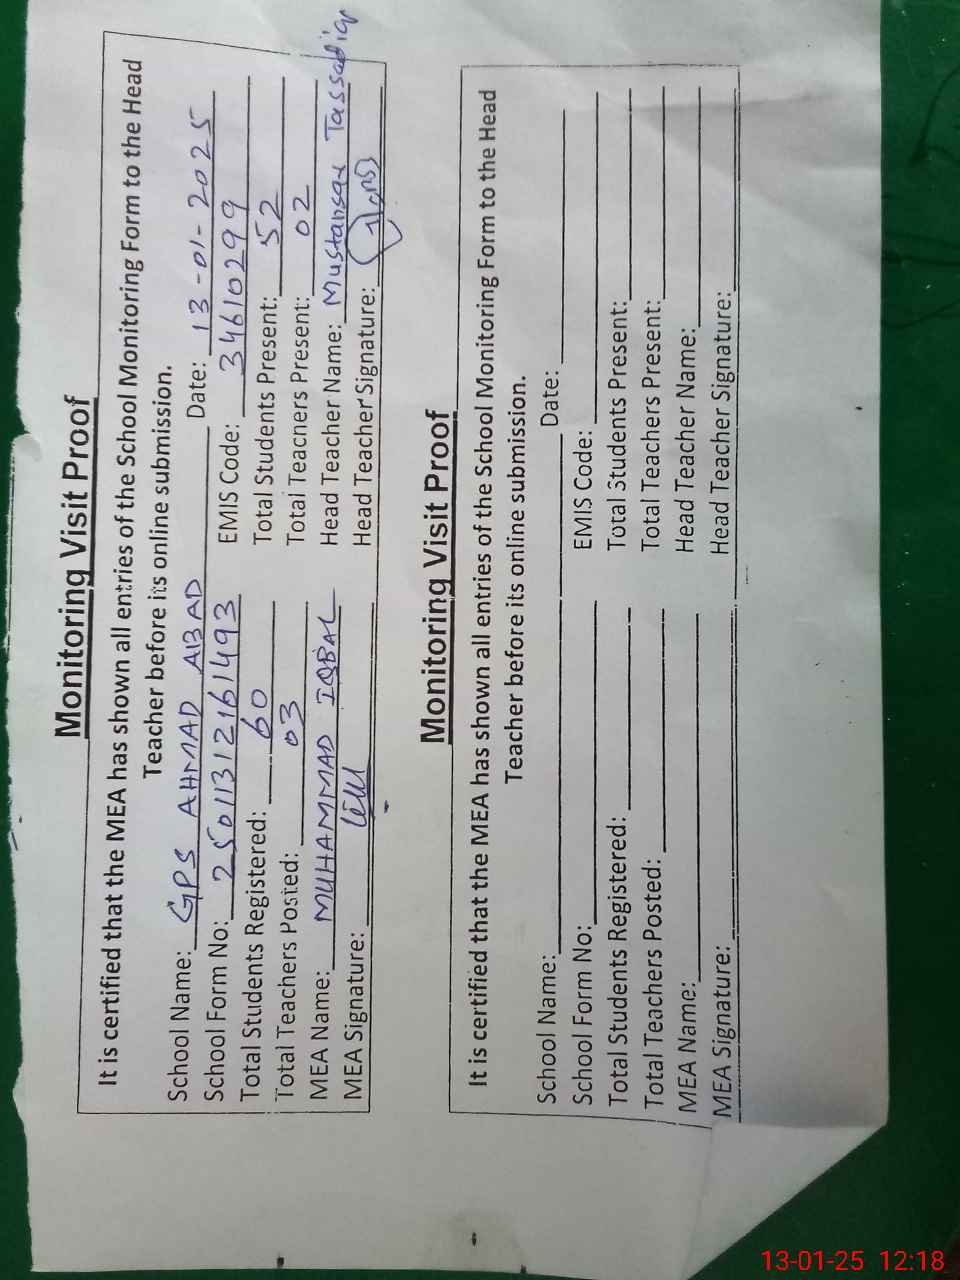 Monitoring Visit Proof
It is certified that the MEA has shown all entries of the School Monitoring Form to the Head
Teacher before its online submission.
School Name: GPS AHMAD ABAD Date: 13-01-2025
School Form No: 2501312161493 EMIS Code: 34610299
Total Students Registered: 60 Total Students Present: 52
Total Teachers Posted: 03 Total Teachers Present: 02
MEA Name: MUHAMMAD IQBAL Head Teacher Name: Mustansar Tassadiq
MEA Signature: Head Teacher Signature:
Monitoring Visit Proof
It is certified that the MEA has shown all entries of the School Monitoring Form to the Head
Teacher before its online submission.
School Name: Date:
School Form No: EMIS Code:
Total Students Registered: Total Students Present:
Total Teachers Posted: Total Teachers Present:
MEA Name: Head Teacher Name:
MEA Signature: Head Teacher Signature:
13-01-25 12:18